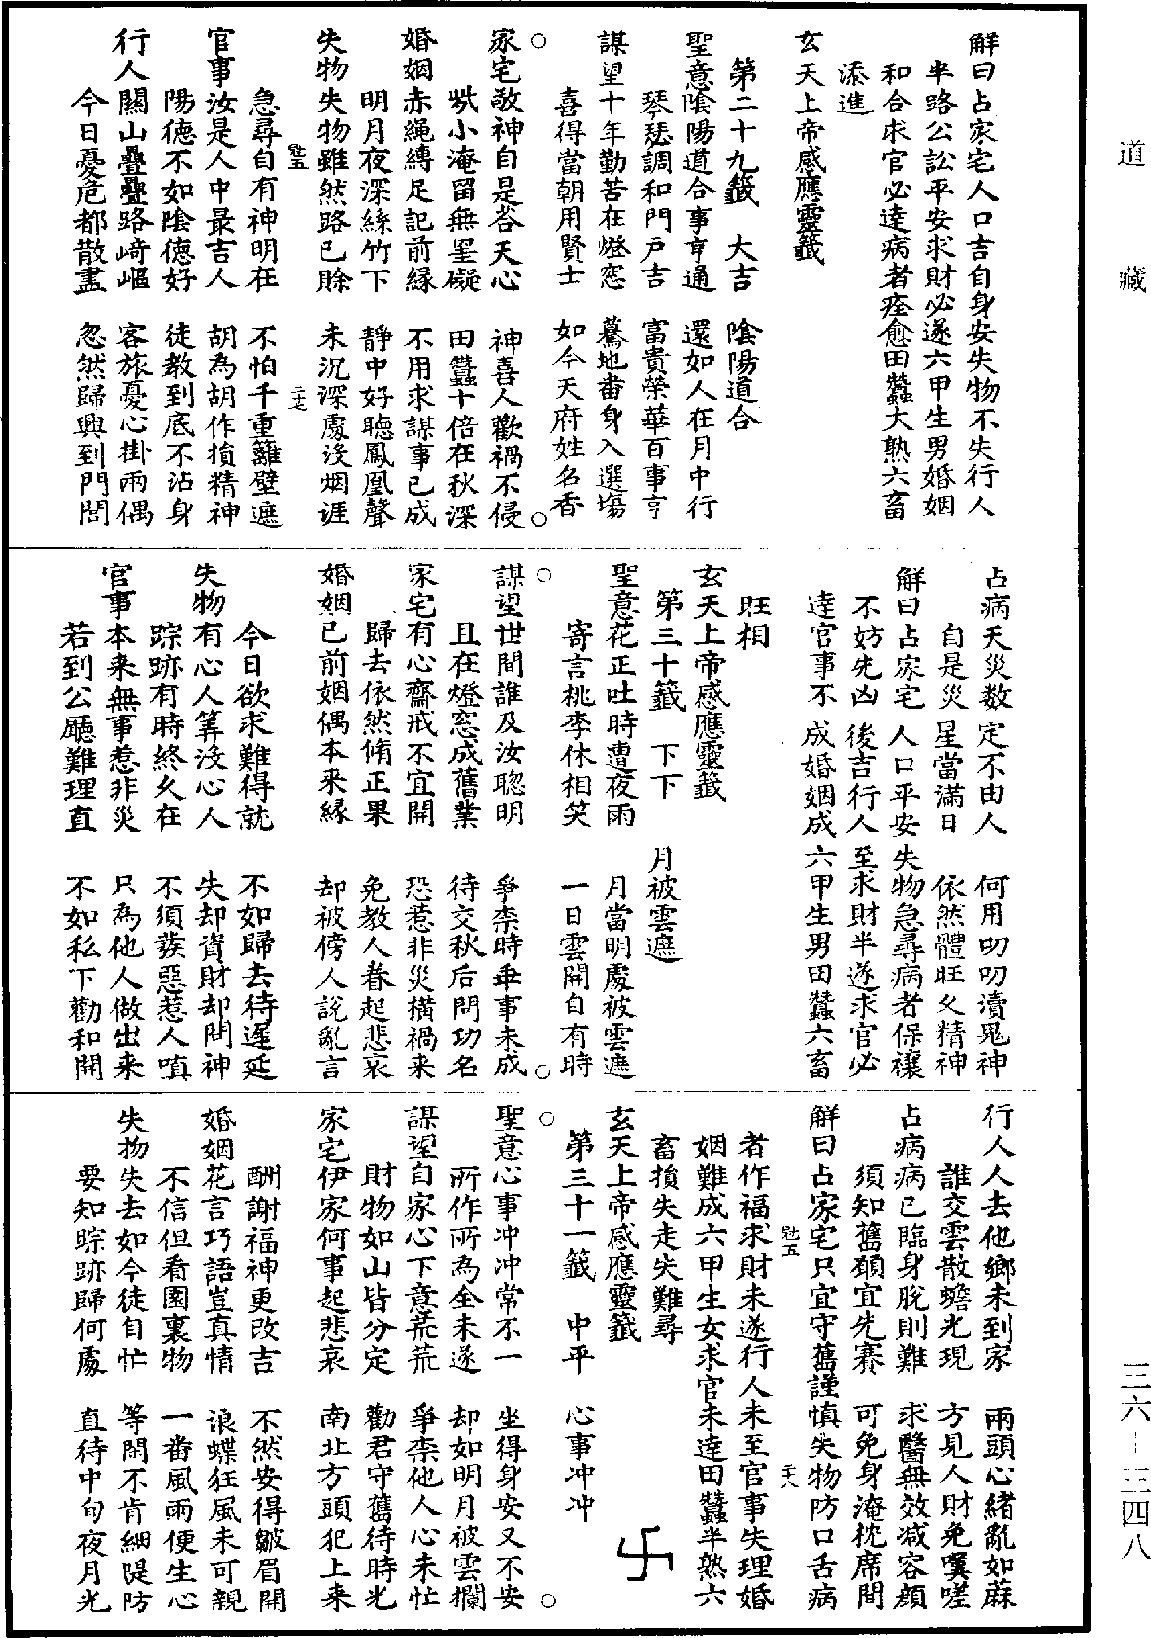 解曰占家宅人口吉自身安失物不失行人
半路公訟平安求財必遂六甲生男婚姻
和合求官必達病者痊愈田蠶大熟六畜
添進
玄天上帝感應靈籤
第二十九籤　大吉　陰陽道合
聖意陰陽道合事亨通　還如人在月中行
琴瑟調和門戶吉　富貴榮華百事亨
謀望十年勤苦在燈窓　驀地番身入選場
喜得當朝用賢士　如今天府姓名香
○家宅敬神自是答天心　神喜人歡禍不侵○
㸔小淹留無罣礙　田蠶十倍在秋深
婚姻赤繩縛足記前緣　不用求謀事已成
明月夜深絲竹下　靜中好聽鳳凰聲
失物失物雖然路已賒　未沉深處沒烟涯
急尋自有神明在　不怕千重籬壁遮
官事汝是人中最吉人　胡為胡作損精神
陽德不如陰德好　徒教到底不沾身
行人關山疊疊路崎嶇　客旅憂心掛兩偶
今日憂危都散盡　忽然歸興到門閭
占病天災數定不由人　何用叨叨瀆鬼神
自是災星當滿日　依然體旺夊精神
解曰占家宅人口平安失物急尋病者保禳
不妨先凶後吉行人至求財半遂求官必
達官事不成婚姻成六甲生男田蠶六畜
旺相
玄天上帝感應靈籤
第三十籤　下下　月被雲遮
聖意花正吐時遭夜雨　月當明處被雲遮
寄言桃李休相笑　一日雲開自有時
○謀望世間誰及汝聰明　爭柰時乖事未成○
且在燈窓成舊業　待交秋后問功名
家宅有心齋戒不宜開　恐惹非災橫禍来
歸去依然脩正果　免教人眷起悲哀
婚姻已前姻偶本来緣　却被傍人說亂言
今日欲求難得就　不如歸去待遲延
失物有心人筭沒心人　失却資財却問神
踪跡有時終久在　不須㷇惡惹人嗔
官事本来無事惹非災　只為他人做出来
若到公廳難理直　不如私下勸和開
行人人去他鄉未到家　兩頭心緒亂如蔴
誰交雲散蟾光現　方見人財免嘆嗟
占病病已臨身脫則難　求醫無效减容顏
須知舊願宜先賽　可免身淹枕席間
解曰占家宅只宜守舊謹慎失物防口舌病
者作福求財未遂行人未至官事失理婚
姻難成六甲生女求官未達田蠶半熟六
畜損失走失難尋
玄天上帝感應靈籤
第三十一籤　中平　心事冲冲
○聖意心事冲冲常不一　坐得身安又不安○
所作所為全未遂　却如明月被雲攔
謀望自家心下意荒荒　爭柰他人心未忙
財物如山皆分定　勸君守舊待時光
家宅伊家何事起悲哀　南北方頭犯上来
酬謝福神更改吉　不然安得皺眉開
婚姻花言巧語豈真情　浪蝶狂風未可親
不信但看園裏物　一番風雨便生心
失物失去如今徒自忙　等閑不肯細隄防
要知踪跡歸何處　直待中旬夜月光
道藏
三六-三四八